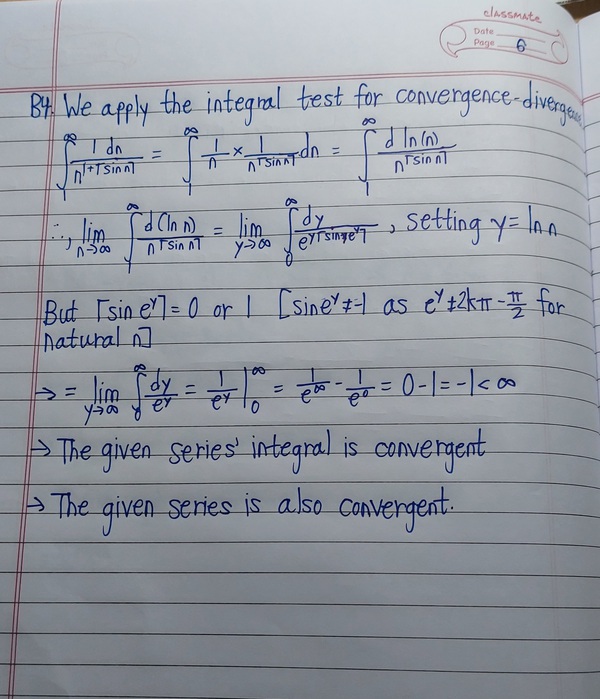 classmate
Date
Page 6
B4. We apply the integral test for convergence-divergence
∫₁^∞ 1 dn / n^(1+⌈sin n⌉) = ∫₁^∞ 1/n × 1/n^⌈sin n⌉ dn = ∫₁^∞ d ln(n) / n^⌈sin n⌉
∴, lim n→∞ ∫₁^∞ d(ln n) / n^⌈sin n⌉ = lim y→∞ ∫₀^∞ dy / e^(y⌈sin e^y⌉), setting y = ln n
But ⌈sin e^y⌉ = 0 or 1 [sin e^y ≠ -1 as e^y ≠ 2kπ - π/2 for
natural n]
→ = lim y→∞ ∫₀^∞ dy/e^y = 1/e^y |₀^∞ = 1/e^∞ - 1/e^0 = 0 - 1 = -1 < ∞
→ The given series' integral is convergent
→ The given series is also convergent.